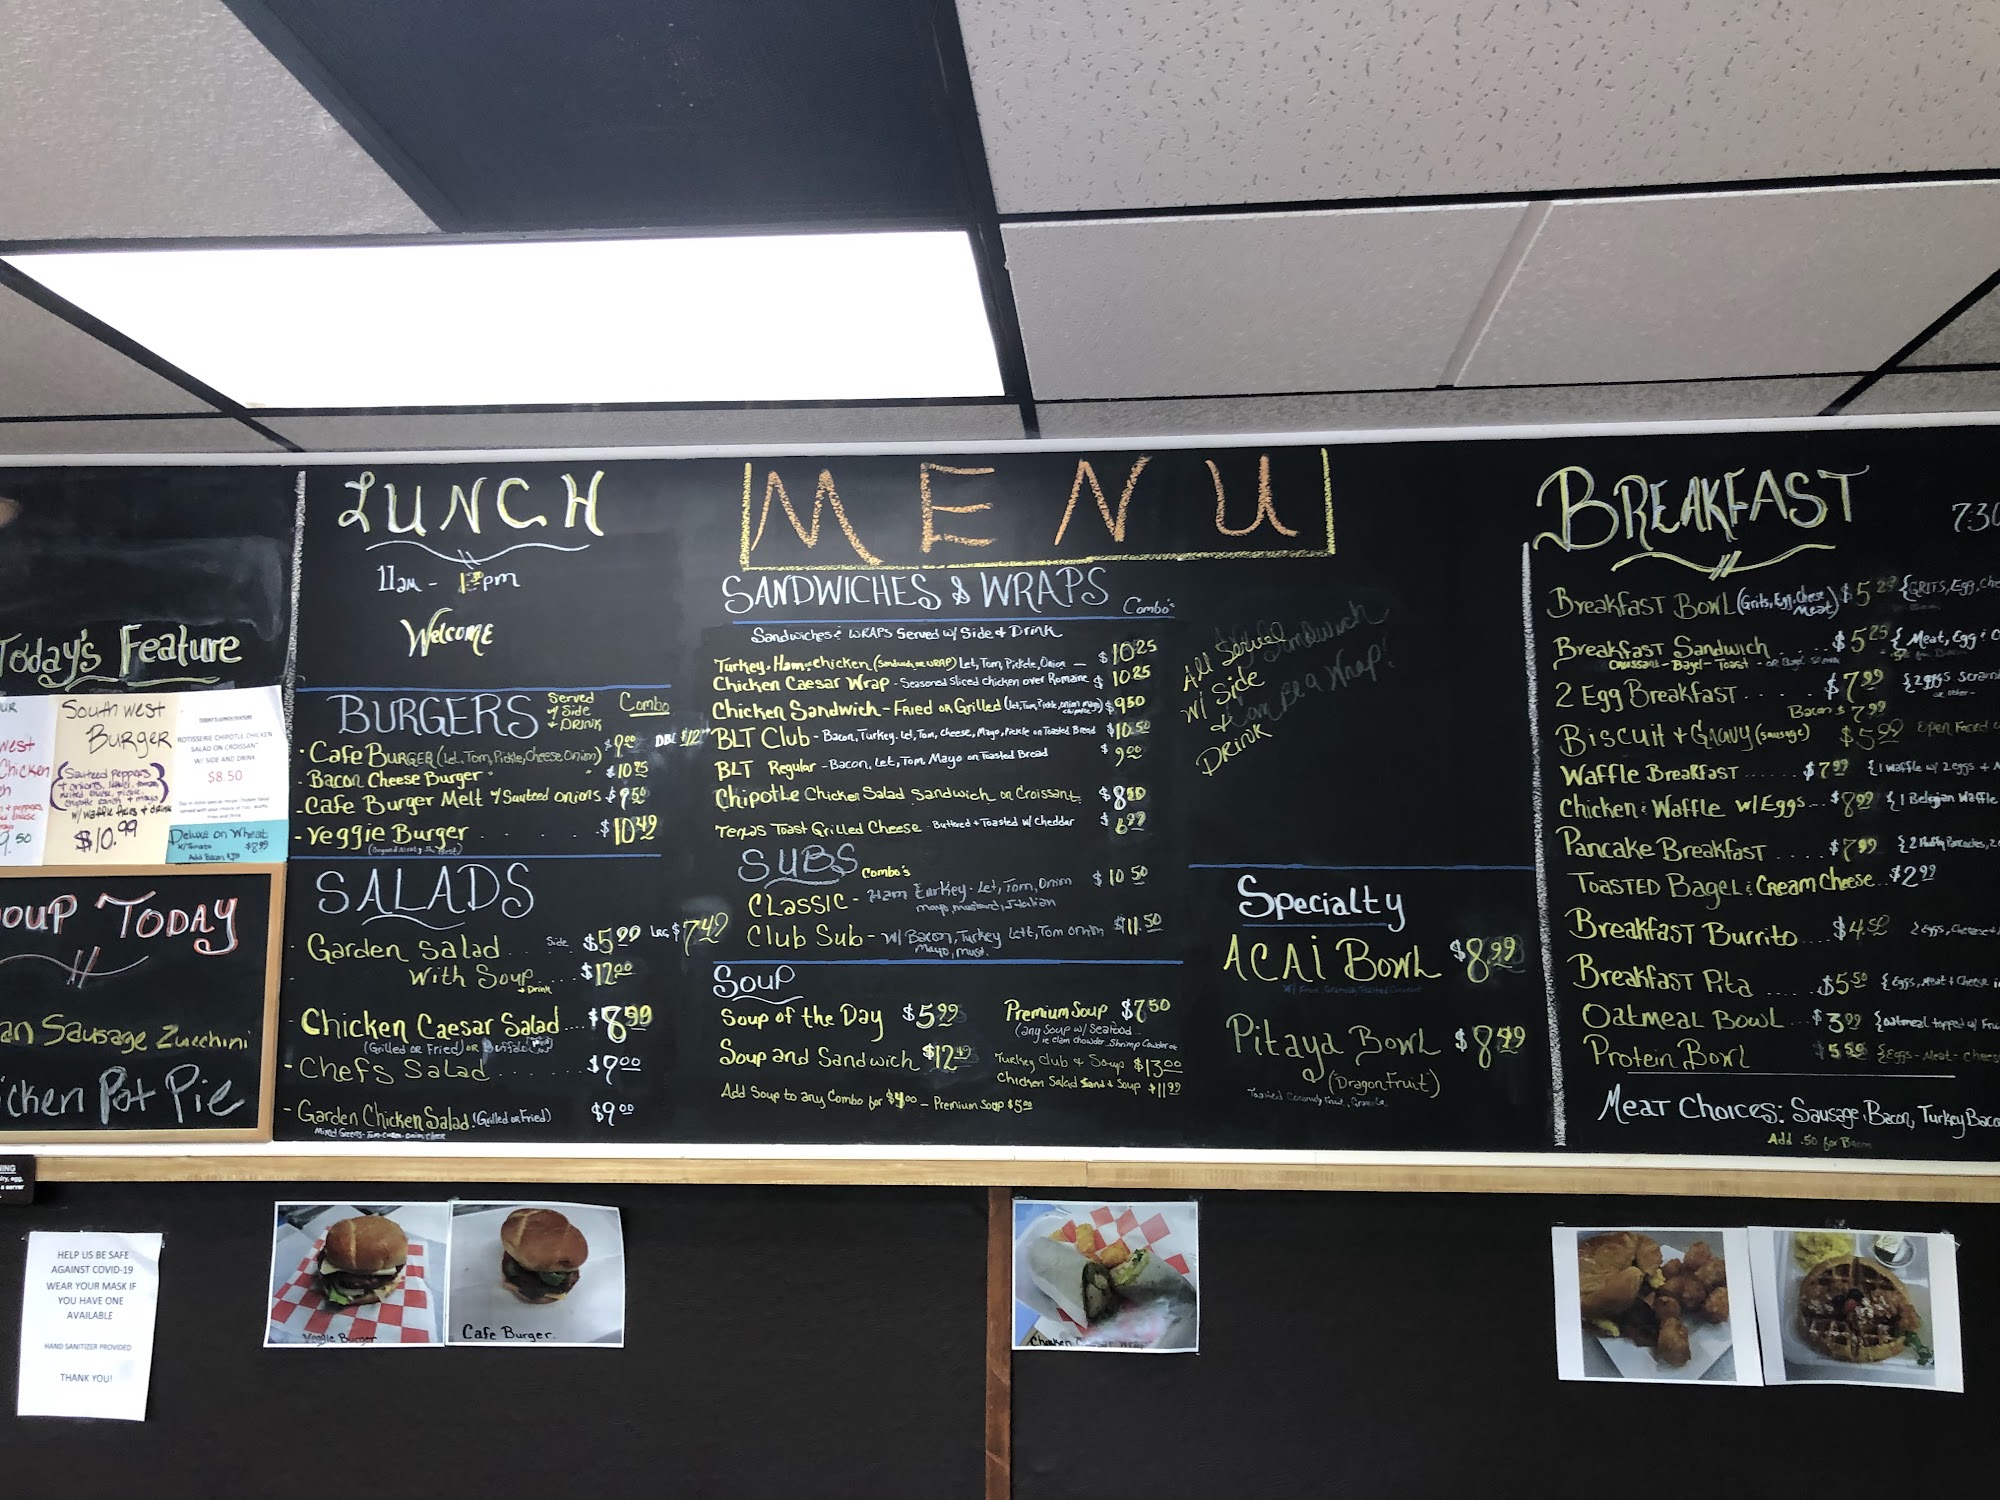 Today's Feature
South west
Burger
Sauteed Peppers
+ onions, lettuce, tomato
melted cheese, pickle,
chipotle ranch + mayo
w/ waffle fries + drink
$10.99
west
Chicken
9.50
TODAY'S LUNCH FEATURE
ROTISSERIE CHIPOTLE CHICKEN
SALAD ON CROISSANT
W/ SIDE AND DRINK
$8.50
Deluxe on Wheat
w/ Tomato $8.99
Add Bacon
SOUP TODAY
an Sausage Zucchini
icken Pot Pie
LUNCH
11am - pm
Welcome
BURGERS Served w/ Side + DRINK Combo
- Cafe BURGER (Let, Tom, Pickle, Cheese, Onion) $9.00 DBL $12
- Bacon Cheese Burger " " $10.75
- Cafe Burger Melt w/ Sauteed onions $9.50
- Veggie Burger $10.49
SALADS
Garden Salad Side $5.99 LRG $7.49
With Soup + Drink $12.00
- Chicken Caesar Salad .... $8.99
(Grilled or Fried) or Buffalo
- Chefs Salad $9.00
- Garden Chicken Salad (Grilled or Fried) $9.00
MENU
SANDWICHES & WRAPS Combo's
Sandwiches & WRAPS Served w/ Side & Drink
Turkey - Ham - chicken (Sandwich or WRAP) Let, Tom, Pickle, Onion — $10.25
Chicken Caesar Wrap - Seasoned sliced chicken over Romaine $10.25
Chicken Sandwich - Fried or Grilled (Let, Tom, Pickle, onion mayo) $9.50
BLT Club - Bacon, Turkey, Let, Tom, Cheese, Mayo, Pickle on Toasted Bread $10.50
BLT Regular - Bacon, Let, Tom, Mayo on Toasted Bread $9.00
Chipotle Chicken Salad Sandwich on Croissant $8.50
Texas Toast Grilled Cheese - Buttered + Toasted w/ Cheddar $6.99
SUBS Combo's
CLASSIC - Ham Turkey - Let, Tom, Onion $10.50
mayo, mustard, Italian
Club Sub - w/ Bacon, Turkey Lett, Tom onion $11.50
Mayo, Must.
Soup
Soup of the Day $5.99
Soup and Sandwich $12.49
Add Soup to any Combo for $4.00 - Premium Soup $5.00
Premium Soup $7.50
(any Soup w/ Seafood
ie clam chowder, Shrimp Chowder etc
Turkey Club & Soup $13.00
Chicken Salad Sand & Soup $11.99
All Served
w/ Side
+
Drink
Any Sandwich
Can Be a Wrap!
Specialty
ACAI Bowl $8.99
Pitaya Bowl $8.99
(DragonFruit)
BREAKFAST 7:30
Breakfast Bowl (Grits, Egg, Cheese Meat) $5.29 {GRITS, Egg, Che
Breakfast Sandwich ... $5.25 { Meat, Egg &
Croissant - Bagel - Toast -
2 Egg Breakfast .... $7.99 {2 eggs Scram
Bacon $7.99
Biscuit + Gravy (sausage) $5.99 Open Faced
Waffle Breakfast ...... $7.99 {1 waffle w/ 2 eggs +
Chicken & Waffle w/ Eggs ... $8.99 { 1 Belgian Waffle
Pancake Breakfast .... $7.99 { 2 Fluffy Pancakes, 2
Toasted Bagel & Cream Cheese .. $2.99
Breakfast Burrito .... $4.50 2 Eggs, Cheese +
Breakfast Pita .... $5.50 { Eggs, Meat + Cheese
Oatmeal Bowl ... $3.99 {Oatmeal topped w/ Fru
Protein Bowl $5.50 {Eggs - Meat - Chees
Meat Choices: Sausage, Bacon, Turkey Baco
Add .50 for Bacon
HELP US BE SAFE
AGAINST COVID-19
WEAR YOUR MASK IF
YOU HAVE ONE
AVAILABLE
HAND SANITIZER PROVIDED
THANK YOU!
Veggie Burger
Cafe Burger
Chicken Caesar Wrap